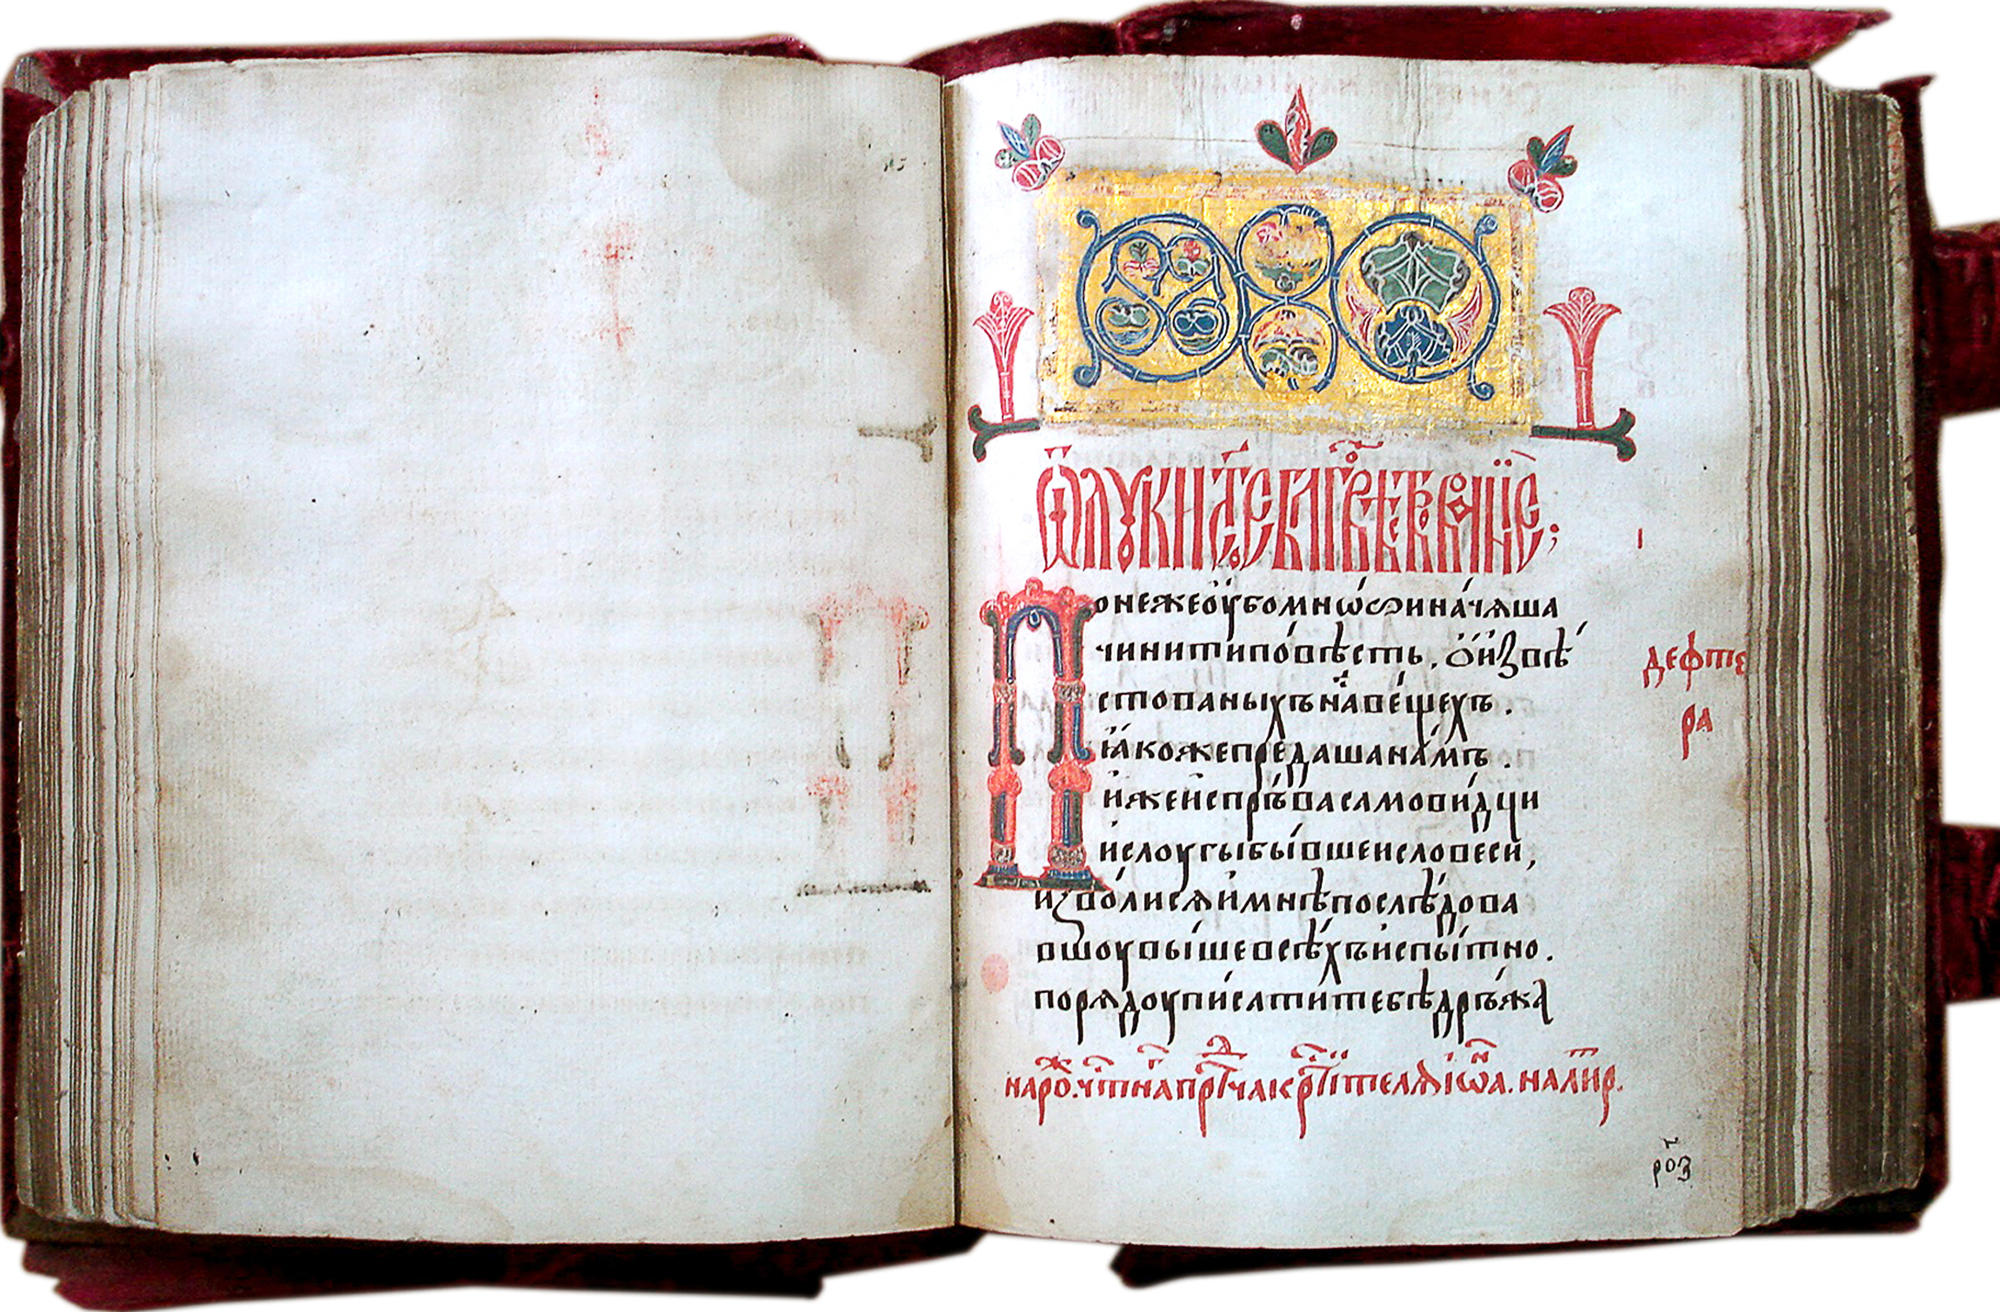 Ѿ лꙋкисто́е бл҃говѣствова́нїе ;
Понежеоу҆бомно́ѕиначѧша
чинитипо́вѣсть. ѡ҆и҆звѣ́
стованыхъна́сⷯве́щехъ.
ꙗ҆́кожепре́дашана́мъ.
и҆́жеи҆спръ́васамови́дци
и҆слоугыбы́вшеисловеси,
изво́лисѧи҆мнѣ́послѣ́дова
вшоувы́шевсѣ́хъи҆спы́тно.
порѧ́доупи́сатитебѣ́дръ́жа
дефте
ра
наро̑ж.чт̑нап҆рⷣтчакрⷭ҇тителѧі҆ѡⷩ҇а.налиⷮр.
роз